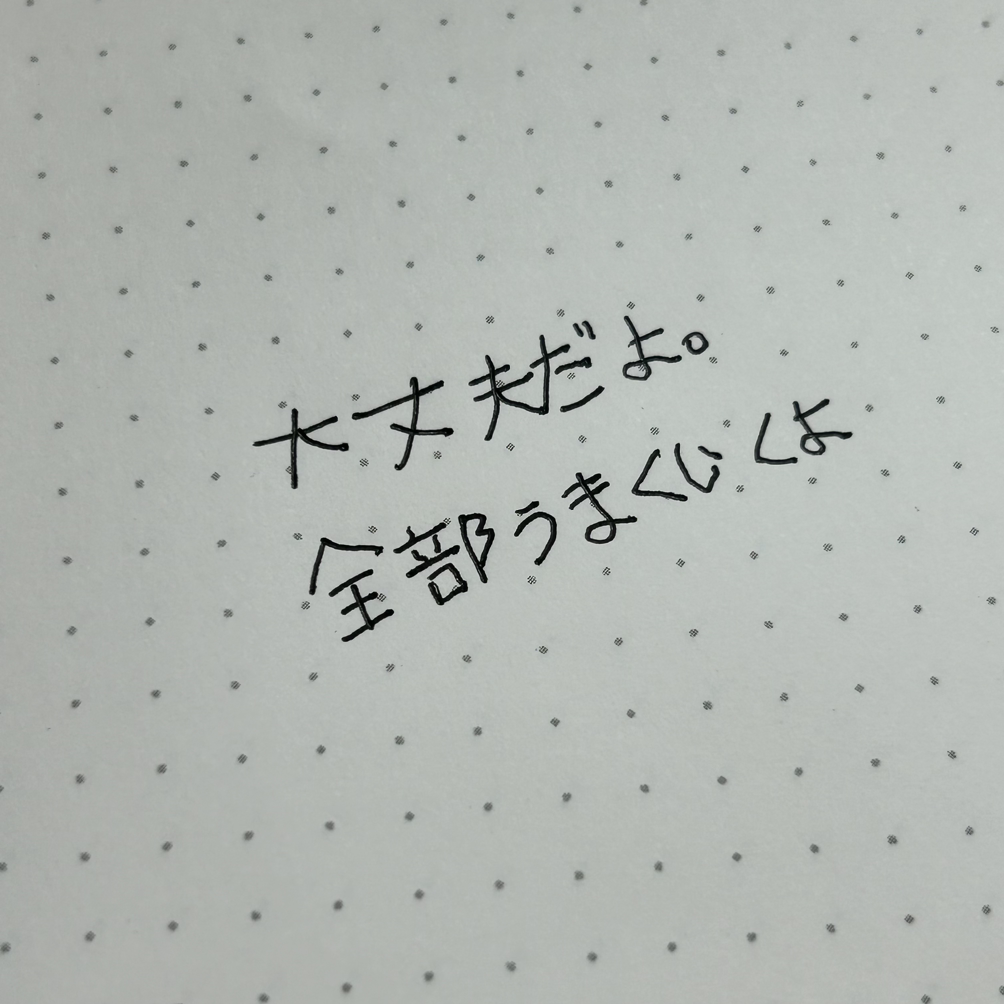 大丈夫だよ。
全部うまくいくよ